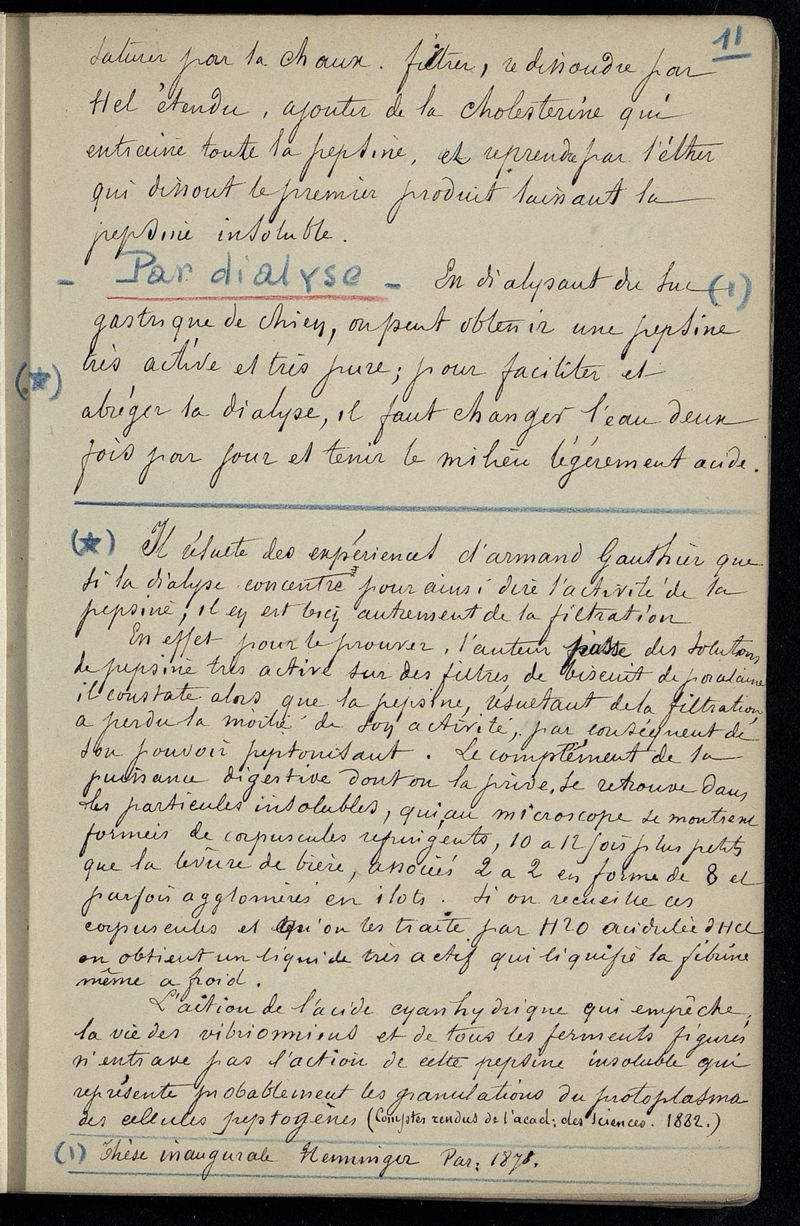 11
saturer par la chaux. filtrer, redissoudre par
Hcl étendu, ajouter de la cholesterine qui
entraine toute la pepsine, et reprendre par l'éther
qui dissout le premier produit laissant la
pepsine insoluble.
- Par dialyse - En dialysant du suc (1)
gastrique de chien, on peut obtenir une pepsine
(★) très active et très pure; pour faciliter et
abréger la dialyse, il faut changer l'eau deux
fois par jour et tenir le milieu légérement acide.
(★) Il résulte des expériences d'armand Gauthier que
si la dialyse concentre pour ainsi dire l'activité de la
pepsine, il en est bien autrement de la filtration
En effet pour le prouver, l'auteur passe des solutions
de pepsine très active sur des filtres de biscuit de porcelaine
il constate alors que la pepsine, résultant de la filtration
a perdu la moitié de son activité, par conséquent de
son pouvoir peptonisant. Le complément de la
puissance digestive dont on la prive, se retrouve dans
les particules insolubles, qui au microscope se montrent
formeés de corpuscules refringents, 10 a 12 fois plus petits
que la levûre de bière, associés 2 a 2 en forme de 8 et
parfois agglomérés en ilots. Si on recueille ces
corpuscules et qu'on les traite par H2O acidulée d'Hcl
on obtient un liquide très actif qui liquifie la fibrine
même a froid.
L'action de l'acide cyanhydrique qui empêche
la vie des vibrioniens et de tous les ferments figurés
n'entrave pas l'action de cette pepsine insoluble qui
représente probablement les granulations du protoplasma
des cellules peptogènes (Comptes rendus de l'acad: des Sciences. 1882.)
(1) Thèse inaugurale Henninger Par: 1878.